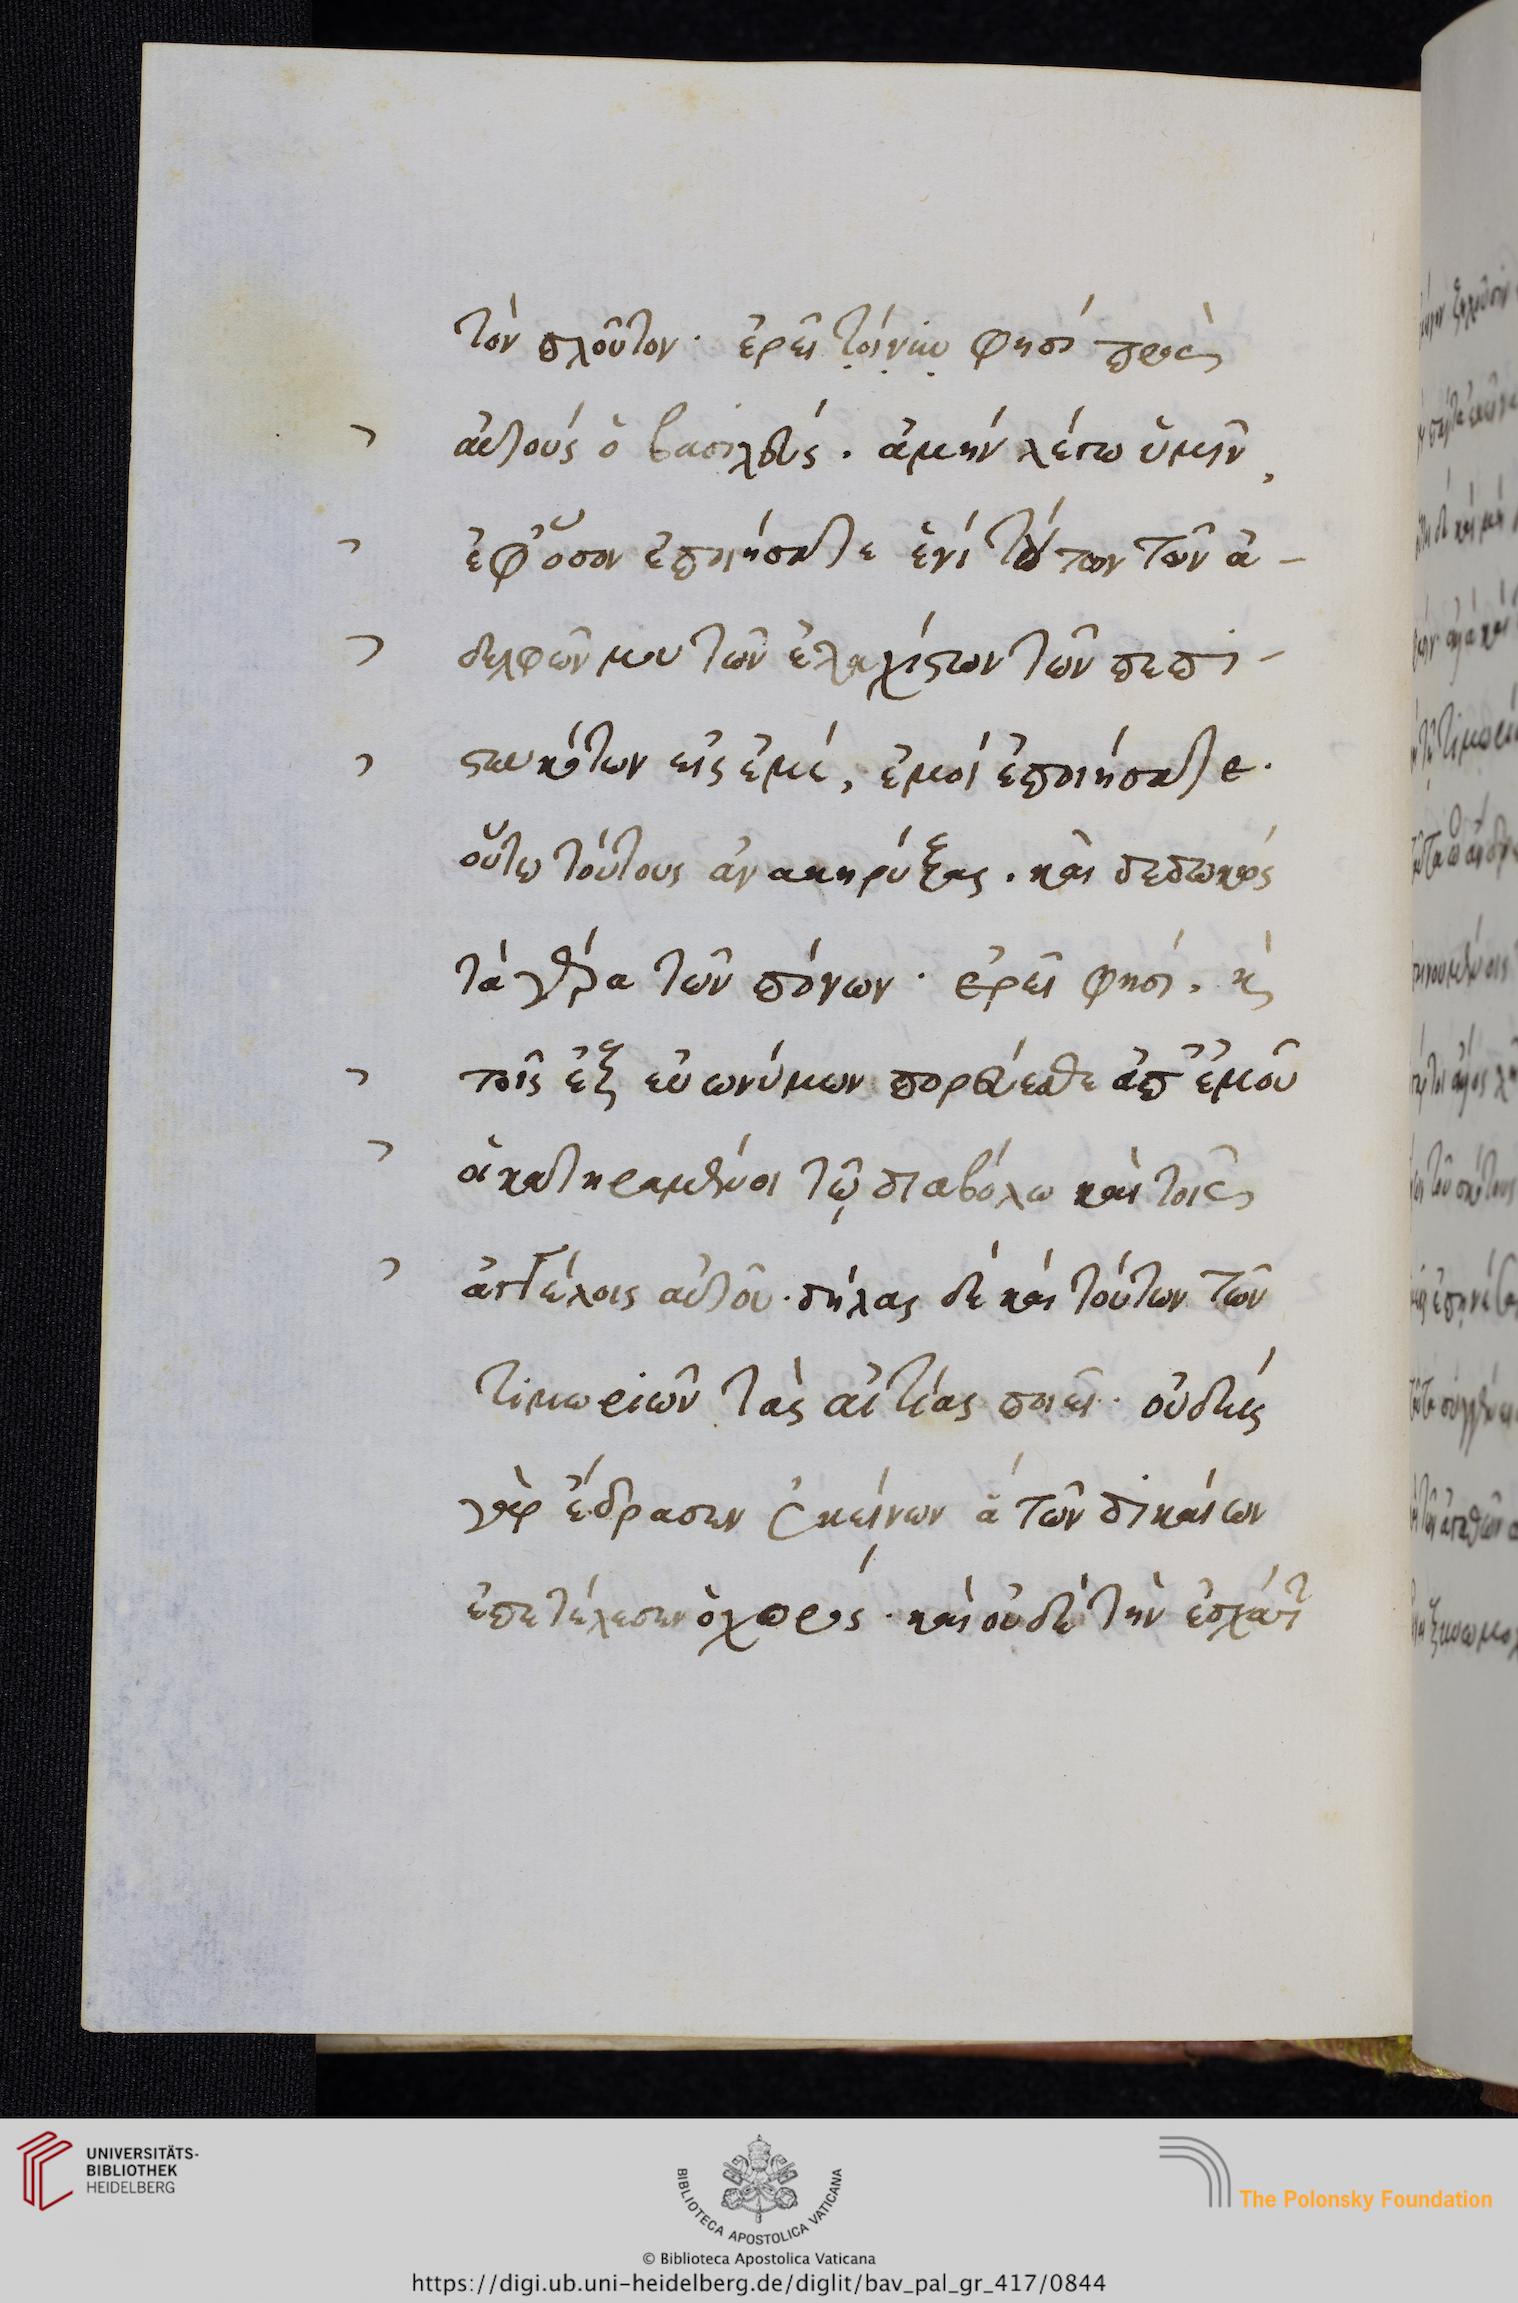 τὸν πλοῦτον· ἐρεῖ τοίνυν φησί πρὸς
αὐτούς ὁ βασιλεύς. ἀμήν λέγω ὑμῖν,
ἐφ' ὅσον ἐποιήσατε ἑνί τούτων τῶν ἀ-
δελφῶν μου τῶν ἐλαχίστων τῶν πεπι-
στευκότων εἰς ἐμέ, ἐμοί ἐποιήσατε.
οὕτω τούτους ἀνακηρύξας. καὶ δεδωκώς
τά γέρα τῶν πόνων· ἐρεῖ φησί. κ
τοῖς ἐξ εὐωνύμων πορεύεσθε ἀπ' ἐμοῦ
οἱ κατηραμένοι τῷ διαβόλω καὶ τοῖς
ἀγγέλοις αὐτοῦ. δήλας δέ καί τούτων τῶν
τιμωριῶν τὰς αἰτίας ποιεῖ. οὐδείς
γὰρ ἔδρασεν ἐκείνων ἅ τῶν δικαίων
ἐπετέλεσεν ὁ χορός. καὶ οὐδέ τὴν ἐσχάτ
UNIVERSITÄTS-
BIBLIOTHEK
HEIDELBERG
BIBLIOTECA APOSTOLICA VATICANA
The Polonsky Foundation
© Biblioteca Apostolica Vaticana
https://digi.ub.uni-heidelberg.de/diglit/bav_pal_gr_417/0844